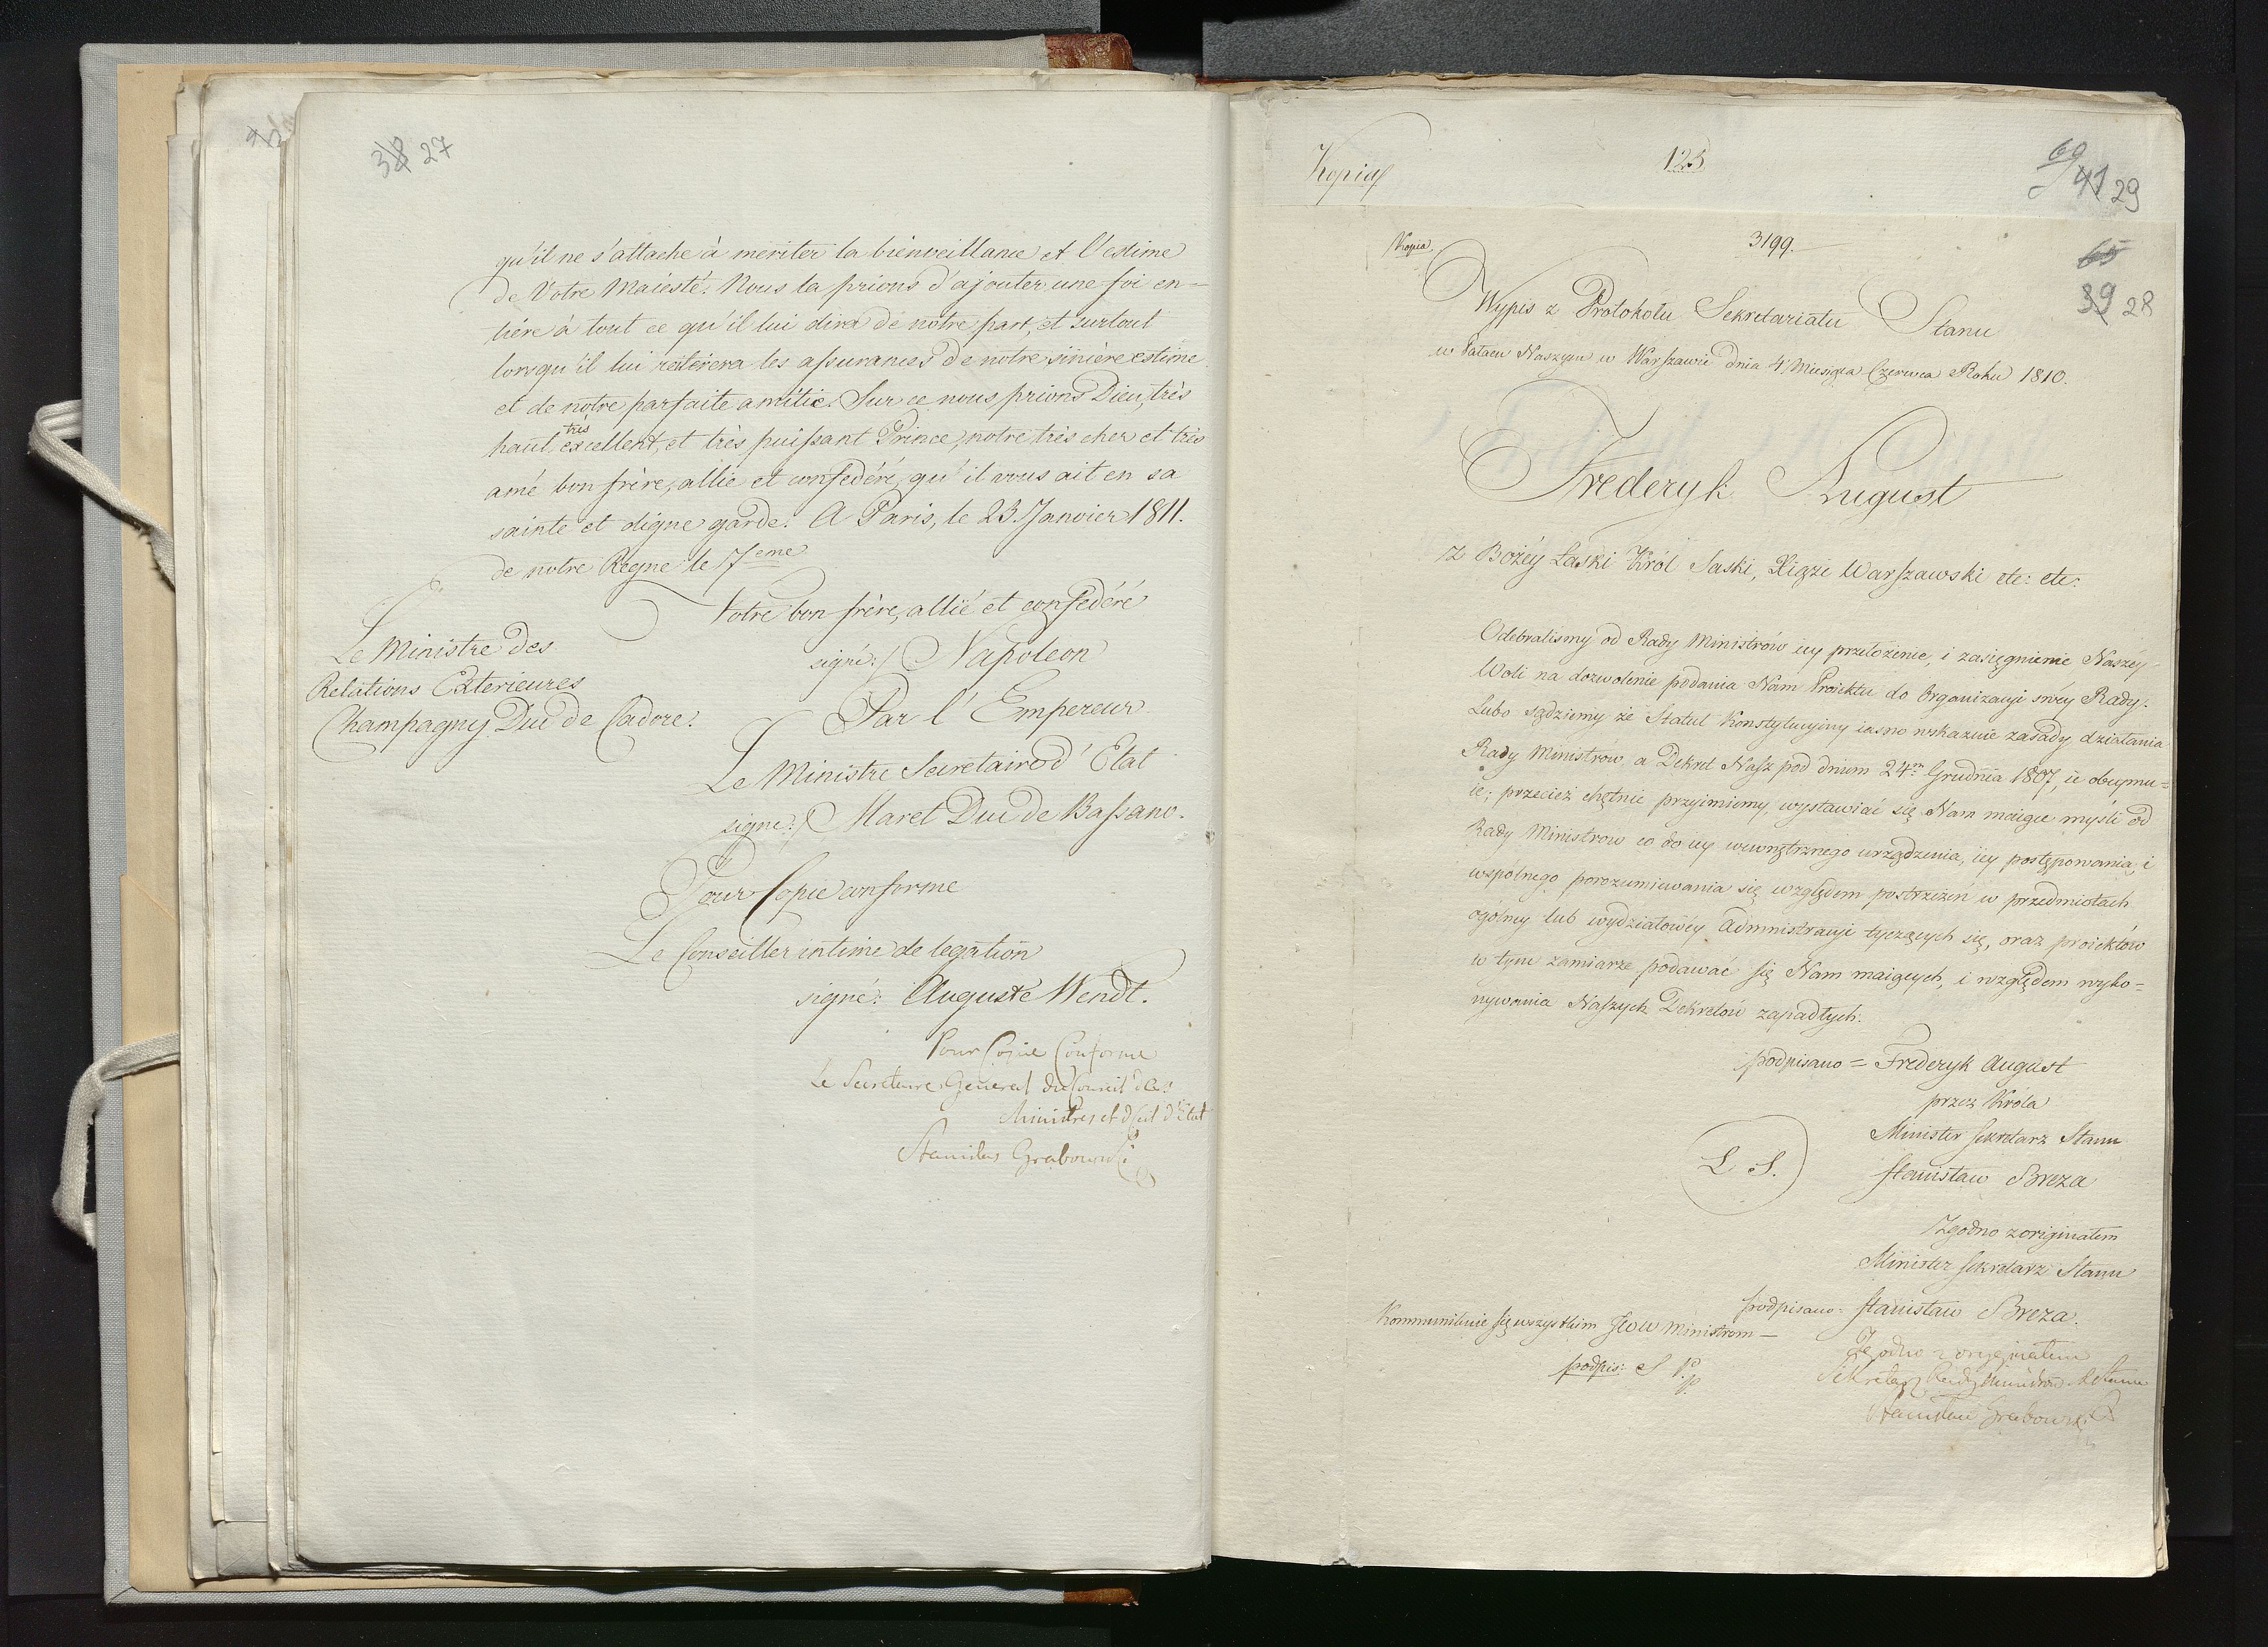 38 27
qu'il ne s'attache à meriter la bienveillance et l'estime
de Votre Maiesté. Nous la prions d'ajouter une foi en=
tiére à tout ce qu'il lui dira de notre part, et surtout
lorsqu'il lui reitérera les assurances de notre sinière estime
et de notre parfaite amitié. Sur ce nous prions Dieu, très
haut, très excellent, et très puissant Prince, notre très cher et très
amé bon frère, allié et confedéré, qu'il vous ait en sa
sainte et digne garde. A Paris, le 23. Janvier 1811.
de notre Regne le 7eme
Votre bon frère, allié et confedéré
signé:/ Napoleon
Le Ministre des
Relations Exterieures
Champagny Duc de Cadore.
Par l'Empereur
Le Ministre Secretaire d'Etat
signé:/ Maret Duc de Bassano.
Pour Copie conforme
Le Conseiller intime de legation
signé: Auguste Wendt.
Pour Copie Conforme
Le Secretaire General du Conseil des
Ministres et d'Etat
Stanislas Grabowski
Kopia
123
69
41 29
Kopia
3199.
65
39 28
Wypis z Protokołu Sekretariatu Stanu
w Pałacu Naszym w Warszawie dnia 4 Miesiąca Czerwca Roku 1810.
Fryderyk August
z Bożéy Łaski Król Saski, Xiąże Warszawski etc: etc:
Odebralismy od Rady Ministrów iey przełożenie, i zasięgnienie Naszéy
Woli na dozwolenie podania Nam Proiektu do Organizacyi swéy Rady.
Lubo sądziemy że Statut Konstytucyiny iasno wskazuie zasady działania
Rady Ministrów, a Dekret Nasz pod dniem 24m Grudnia 1807, ie obeymu=
ie; przecież chętnie przyimiemy, wystawiać się Nam maiące myśli od
Rady Ministrow co do iey wewnętrznego urządzenia, iey postępowania, i
wspólnego porozumiewania się względem postrzeżeń w przedmiotach
ogólney lub wydziałowéy Administracyi tyczących się, oraz proiektów
w tym zamiarze podawać się Nam maiących, i względem wyko=
nywania Naszych Dekretów zapadłych.
podpisano = Fréderyk August
przez Króla
Minister Sekretarz Stanu
L. S.
Stanisław Breza
Zgodno z originałem
Minister Sekretarz Stanu
podpisano: Stanisław Breza.
Kommunikuie się wszystkim JWW Ministrom —
podpis: S. P.
Zgodno z oryginałem
Sekretarz Rady Ministrów i Stanu
Stanisław Grabowski